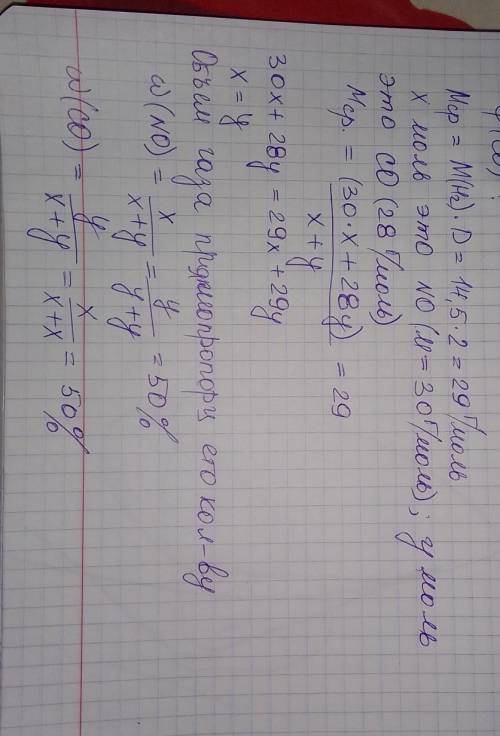 φ(CO) ?
Mср = M(H₂)·D = 14,5·2 = 29 г/моль
x моль это NO (M = 30 г/моль); y моль
это CO (28 г/моль)
Mср. = (30·x + 28y) / (x + y) = 29
30x + 28y = 29x + 29y
x = y
Объём газа прямопропорц его кол-ву
ω(NO) = x / (x + y) = y / (y + y) = 50%
ω(CO) = y / (x + y) = x / (x + x) = 50%